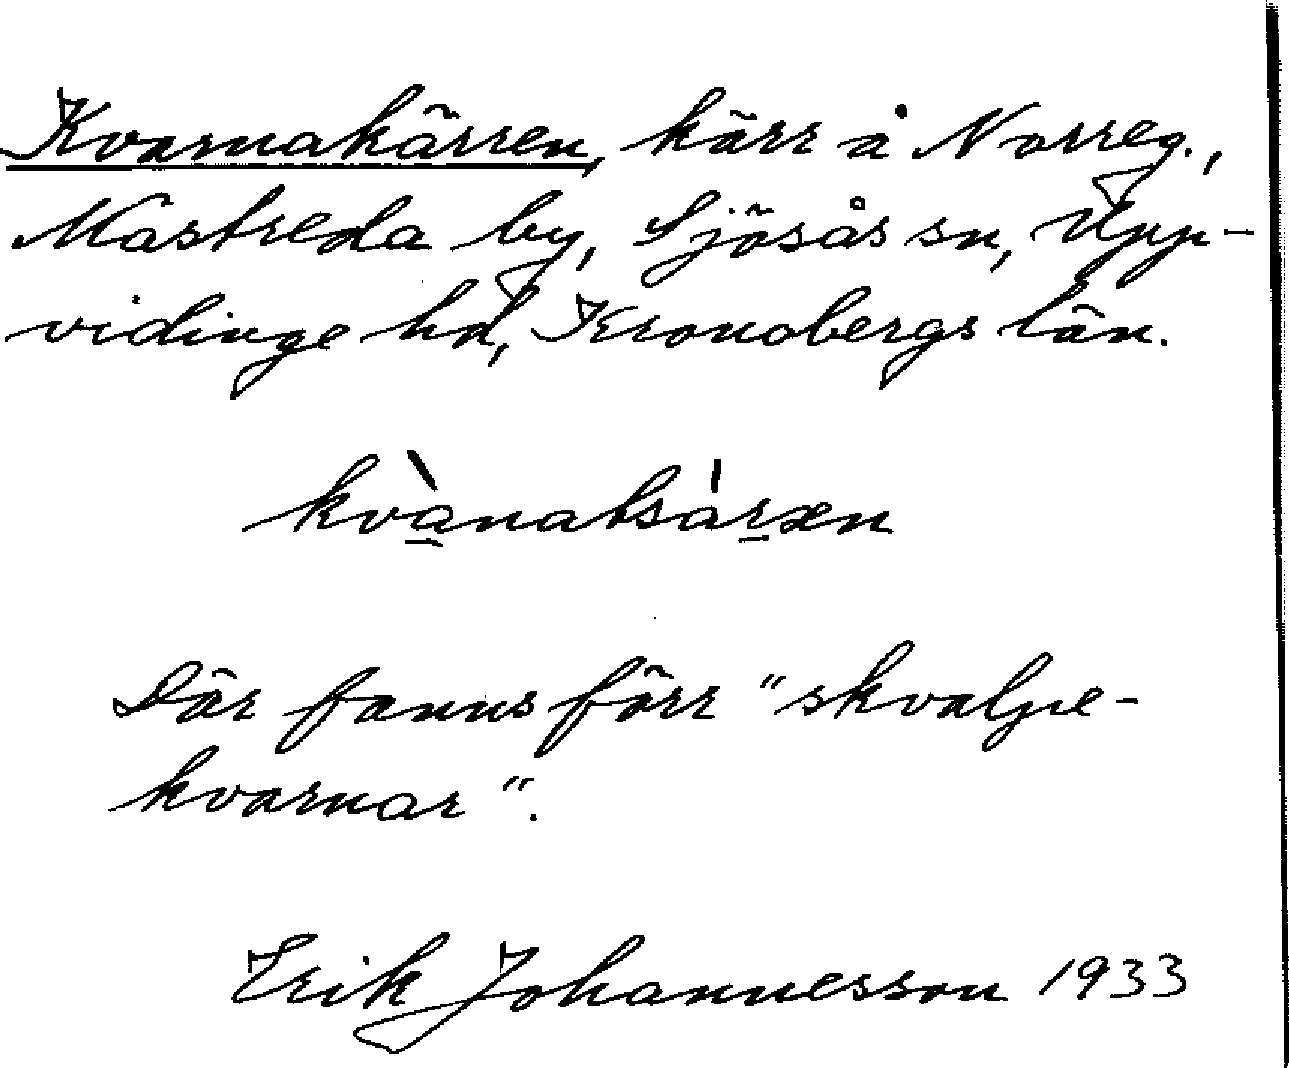 Kvarnakärren, kärr å Norreg.,
Mastreda by, Sjösås sn, Upp-
vidinge hd, Kronobergs län.
kvànatsáræn
Där fanns förr "skvalpe-
kvarnar".
Erik Johannesson 1933